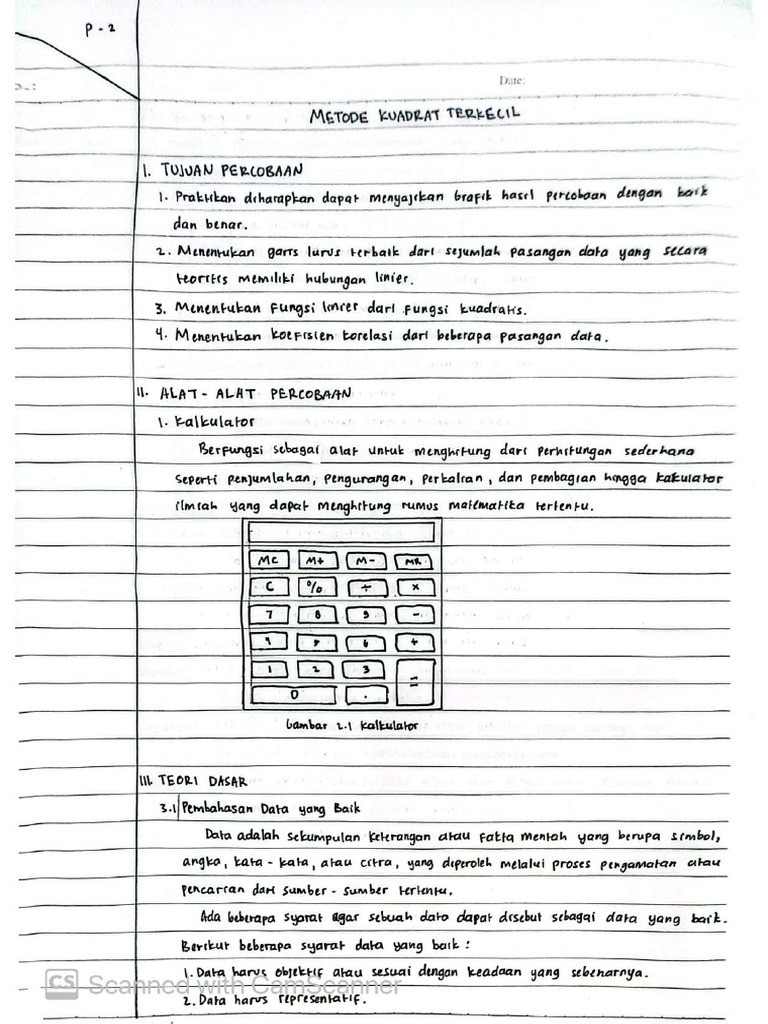 P - 2
Date:
METODE KUADRAT TERKECIL
I. TUJUAN PERCOBAAN
1. Praktikan diharapkan dapat menyajikan Grafik hasil percobaan dengan baik
dan benar.
2. Menentukan garis lurus terbaik dari sejumlah pasangan data yang secara
teoritis memiliki hubungan linier.
3. Menentukan Fungsi linier dari fungsi kuadratis.
4. Menentukan koefisien korelasi dari beberapa pasangan data.
II. ALAT - ALAT PERCOBAAN
1. Kalkulator
Berfungsi sebagai alat untuk menghitung dari perhitungan sederhana
seperti penjumlahan, pengurangan, perkalian, dan pembagian hingga kalkulator
ilmiah yang dapat menghitung rumus matematika tertentu.
MC M+ M- MR
C % ÷ ×
7 8 9 -
4 5 6 +
1 2 3 =
0 .
Gambar 2.1 Kalkulator
III. TEORI DASAR
3.1 Pembahasan Data yang Baik
Data adalah sekumpulan keterangan atau fakta mentah yang berupa simbol,
angka, kata - kata, atau citra, yang diperoleh melalui proses pengamatan atau
pencarian dari sumber - sumber tertentu.
Ada beberapa syarat agar sebuah data dapat disebut sebagai data yang baik.
Berikut beberapa syarat data yang baik :
1. Data harus objektif atau sesuai dengan keadaan yang sebenarnya.
2. Data harus representatif.
CS Scanned with CamScanner